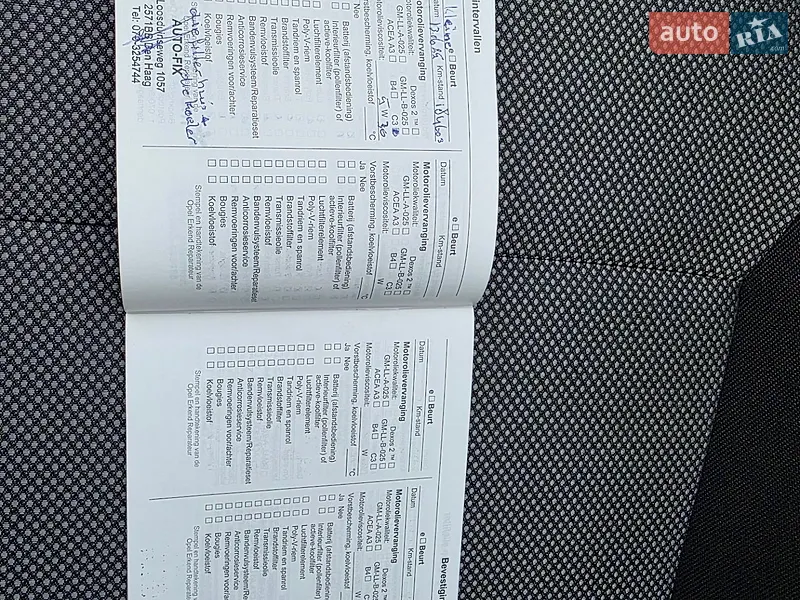 auto RIA
.com
intervallen
kleine e Beurt
Km-stand
Motorolievervanging
Dexos 2 ™
GM-LL-A-025 GM-LL-B-025
ACEA A3 B4 C3
5 W 30
Vorstbescherming, koelvloeistof °C
Nee
Batterij (afstandsbediening)
Interieurfilter (pollenfilter) of
actieve-koolfilter
Luchtfilterelement
Poly-V-riem
Tandriem en spanrol
Brandstoffilter
Transmissieolie
Remvloeistof
Bandenvulsysteem/Reparatieset
Anticorrosieservice
Remvoeringen voor/achter
Bougies
Koelvloeistof
AUTO-FIX
Loosduinseweg 1057
2571BB Den Haag
e Beurt
Datum Km-stand
Motorolievervanging
Motoroliekwaliteit: Dexos 2 ™
GM-LL-A-025 GM-LL-B-025
ACEA A3 B4 C3
Motorolieviscositeit: W
Vorstbescherming, koelvloeistof °C
Ja Nee
Batterij (afstandsbediening)
Interieurfilter (pollenfilter) of
actieve-koolfilter
Luchtfilterelement
Poly-V-riem
Tandriem en spanrol
Brandstoffilter
Transmissieolie
Remvloeistof
Bandenvulsysteem/Reparatieset
Anticorrosieservice
Remvoeringen voor/achter
Bougies
Koelvloeistof
Stempel en handtekening van de
Opel Erkend Reparateur
e Beurt
Datum Km-stand
Motorolievervanging
Motoroliekwaliteit: Dexos 2 ™
GM-LL-A-025 GM-LL-B-025
ACEA A3 B4 C3
Motorolieviscositeit: W
Vorstbescherming, koelvloeistof °C
Ja Nee
Batterij (afstandsbediening)
Interieurfilter (pollenfilter) of
actieve-koolfilter
Luchtfilterelement
Poly-V-riem
Tandriem en spanrol
Brandstoffilter
Transmissieolie
Remvloeistof
Bandenvulsysteem/Reparatieset
Anticorrosieservice
Remvoeringen voor/achter
Bougies
Koelvloeistof
Stempel en handtekening van de
Opel Erkend Reparateur
Bevestigin
e Beurt
Datum Km-stand
Motorolievervanging
Motoroliekwaliteit: Dexos 2
GM-LL-A-025 GM-LL-B-025
ACEA A3 B4
Motorolieviscositeit: W
Vorstbescherming, koelvloeistof
Ja Nee
Batterij (afstandsbediening)
Interieurfilter (pollenfilter)
actieve-koolfilter
Luchtfilterelement
Poly-V-riem
Tandriem en spanrol
Brandstoffilter
Transmissieolie
Remvloeistof
Bandenvulsysteem/Repara
Anticorrosieservice
Remvoeringen voor/a
Bougies
Koelvloeistof
Stempel en handtekening
Opel Erkend Repara